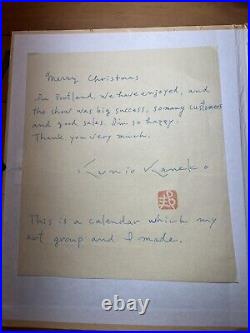 Merry Christmas
In Portland, we have enjoyed, and
the show was big success, so many customers
and good sales. I'm so happy.
Thank you very much.
Kunio Kaneko
This is a calendar which my
art group and I made.